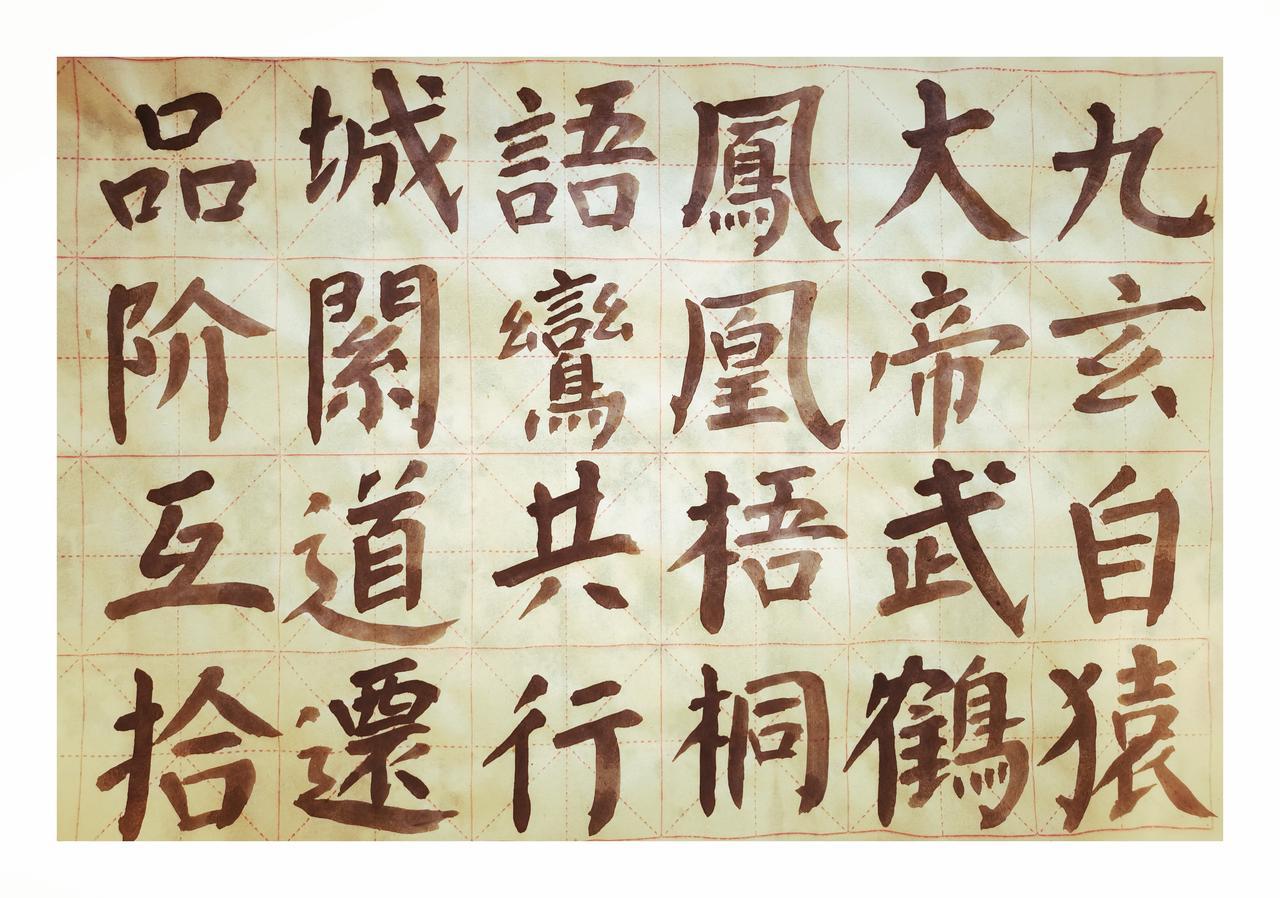 九玄自猿
大帝武鶴
鳳凰梧桐
語鸞共行
城道還
品阶互拾